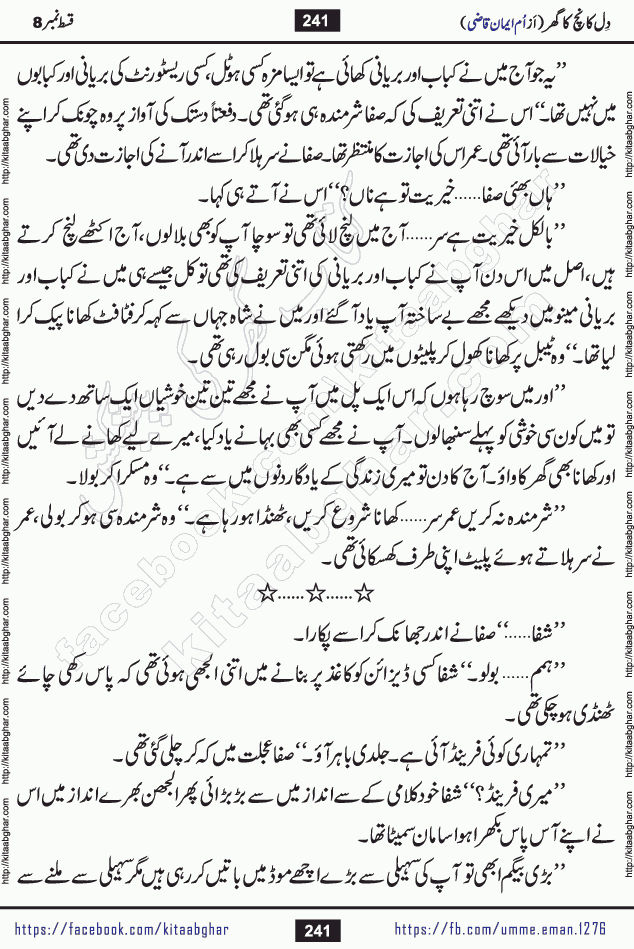 دِل کانچ کا گھر (از اُم ایمان قاضی) 241 قسط نمبر 8
’’یہ جو آج میں نے کباب اور بریانی کھائی ہے تو ایسا مزہ کسی ہوٹل، کسی ریسٹورنٹ کی بریانی اور کبابوں
میں نہیں تھا۔‘‘ اس نے اتنی تعریف کی کہ صفا شرمندہ ہی ہوگئی تھی۔ دفعتاً دستک کی آواز پر وہ چونک کر اپنے
خیالات سے بار آئی تھی۔ عمر اس کی اجازت کا منتظر تھا۔ صفا نے سر ہلا کر اسے اندر آنے کی اجازت دی تھی۔
’’ہاں بھئی صفا...... خیریت تو ہے ناں؟‘‘ اس نے آتے ہی کہا۔
’’بالکل خیریت ہے سر...... آج میں لنچ لائی تھی تو سوچا آپ کو بھی بلا لوں، آج اکٹھے لنچ کرتے
ہیں، اصل میں اس دن آپ نے کباب اور بریانی کی اتنی تعریف کی تھی تو کل جیسے ہی میں نے کباب اور
بریانی مینو میں دیکھے مجھے بے ساختہ آپ یاد آگئے اور میں نے شاہ جہاں سے کہہ کر فٹافٹ کھانا پیک کرا
لیا تھا۔‘‘ وہ ٹیبل پر کھانا کھول کر پلیٹوں میں رکھتی ہوئی مگن سی بول رہی تھی۔
’’اور میں سوچ رہا ہوں کہ اس ایک پل میں آپ نے مجھے تین تین خوشیاں ایک ساتھ دے دیں
تو میں کون سی خوشی کو پہلے سنبھالوں۔ آپ نے مجھے کسی بھی بہانے یاد کیا، میرے لیے کھانے لے آئیں
اور کھانا بھی گھر کا واؤ۔ آج کا دن تو میری زندگی کے یادگار دنوں میں سے ہے۔‘‘ وہ مسکرا کر بولا۔
’’شرمندہ نہ کریں عمر سر...... کھانا شروع کریں، ٹھنڈا ہو رہا ہے۔‘‘ وہ شرمندہ سی ہو کر بولی، عمر
نے سر ہلاتے ہوئے پلیٹ اپنی طرف کھسکائی تھی۔
☆......☆......☆
’’شفا......‘‘ صفا نے اندر جھانک کر اسے پکارا۔
’’ہمم...... بولو۔‘‘ شفا کسی ڈیزائن کو کاغذ پر بنانے میں اتنی الجھی ہوئی تھی کہ پاس رکھی چائے
ٹھنڈی ہو چکی تھی۔
’’تمہاری کوئی فرینڈ آئی ہے۔ جلدی باہر آؤ۔‘‘ صفا عجلت میں کہہ کر چلی گئی تھی۔
’’میری فرینڈ؟‘‘ شفا خود کلامی کے سے انداز میں سے بڑبڑائی پھر الجھن بھرے انداز میں اس
نے اپنے آس پاس بکھرا ہوا سامان سمیٹا تھا۔
’’بڑی بیگم ابھی تو آپ کی سہیلی سے بڑے اچھے موڈ میں باتیں کر رہی ہیں مگر سہیلی سے ملنے سے
https://facebook.com/kitaabghar 241 https://fb.com/umme.eman.1276
http://kitaabghar.com
http://kitaabghar.com
http://kitaabghar.com
http://kitaabghar.com
http://kitaabghar.com
http://kitaabghar.com
http://kitaabghar.com
http://kitaabghar.com
facebook.com/kitaabghar
kitaabghar.com